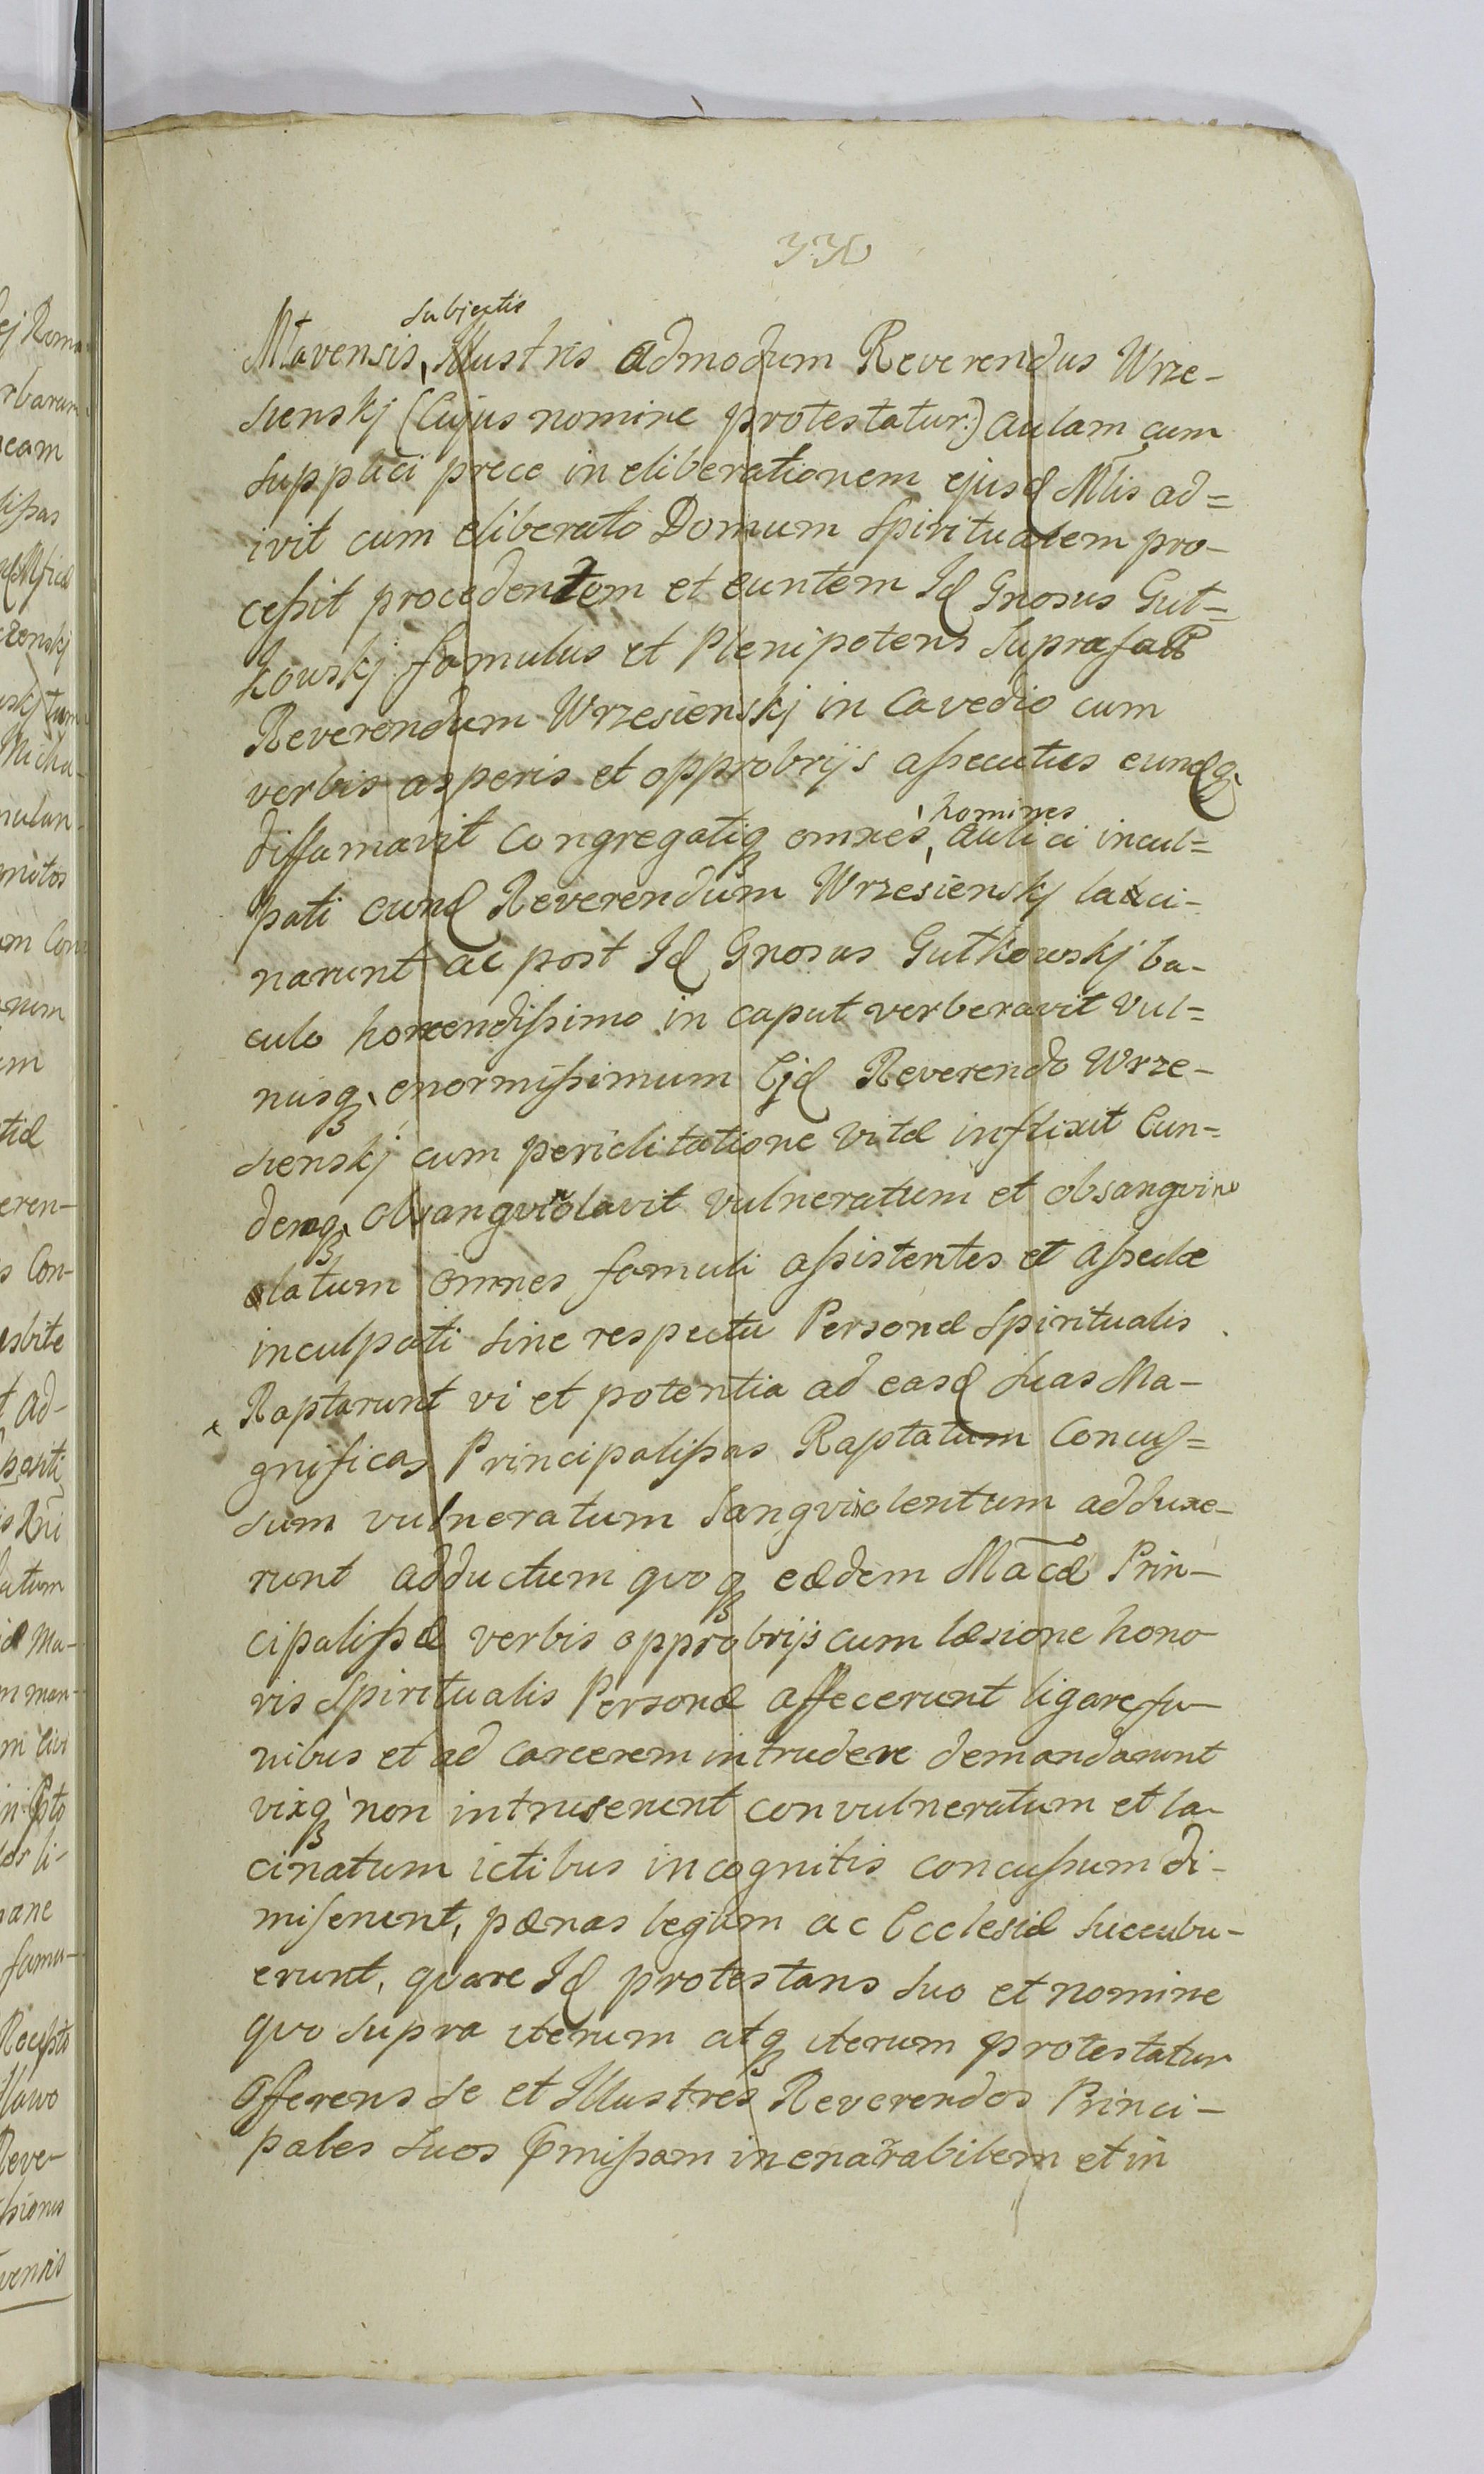 330
subjectis
Mlavensis, Illustris admodum Reverendus Wrze-
sienskj (Cujus nomine protestatur:) aulam cum
supplici prece in eliberationem ejusd Mlis ad=
ivit cum eliberato Domum Spiritualem pro-
cessit procedentem et euntem Id Gnosus Gut=
kowskj famulus et Plenipotens
Reverendum Wrzesienskj in Cavedio cum
verbis asperis et opprobrijs assecutus eundq
diffamavit Congregatiq omnes aulici incul=
homines
pati eund Reverendum Wrzesienskj laci-
narunt ac post Id Gnosus Gutkowskj ba-
culo horrendissimo in caput verberavit vul=
nusq enormissimum Ejd Reverendo Wrze-
sienskj cum periclitatione vitæ inflixit Eun=
demq obsangvinolavit vulneratum et obsangvino
latum omnes famuli assistentes et asseclæ
inculpati sine respectu Personæ Spiritualis
Raptarunt vi et potentia ad easd suas Ma-
gnificas Principalissas Raptatum Concus=
sum vulneratum sangviolentum adduxe-
runt adductum quoq eædem Macæ Prin-
cipalissæ verbis opprobrijs cum læsione hono
ris Spiritualis Personæ affecerunt ligare fu-
nibus et ad carcerem intrudere demandarunt
vixq non intruserunt convulneratum et la-
cinatum ictibus incognitis concussum di-
miserunt, pænas legum ac Ecclesiæ succubu-
erunt, quare Id protestans suo et nomine
quo supra iterum atq iterum protestatur
Offerens se et Illustres Reverendos Princi-
pales suos pmissam inenarrabilem et in